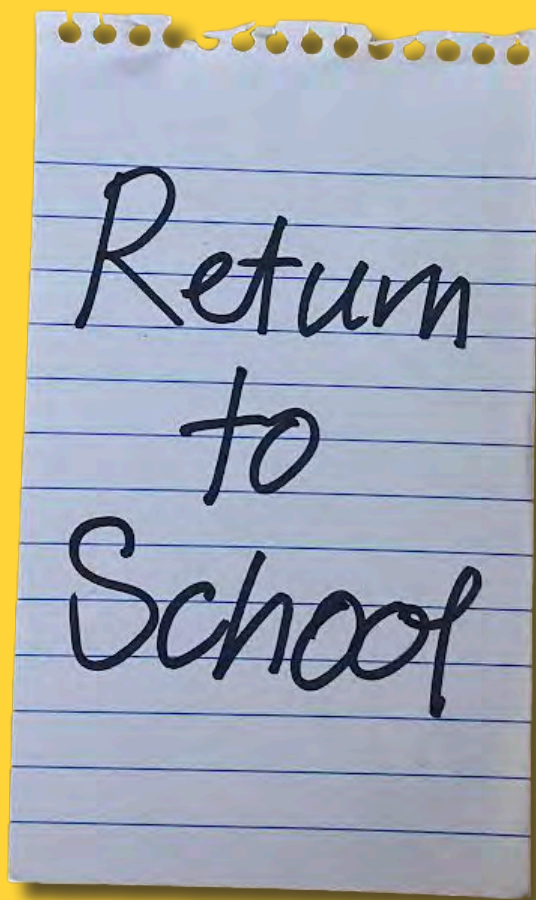 Return
to
School